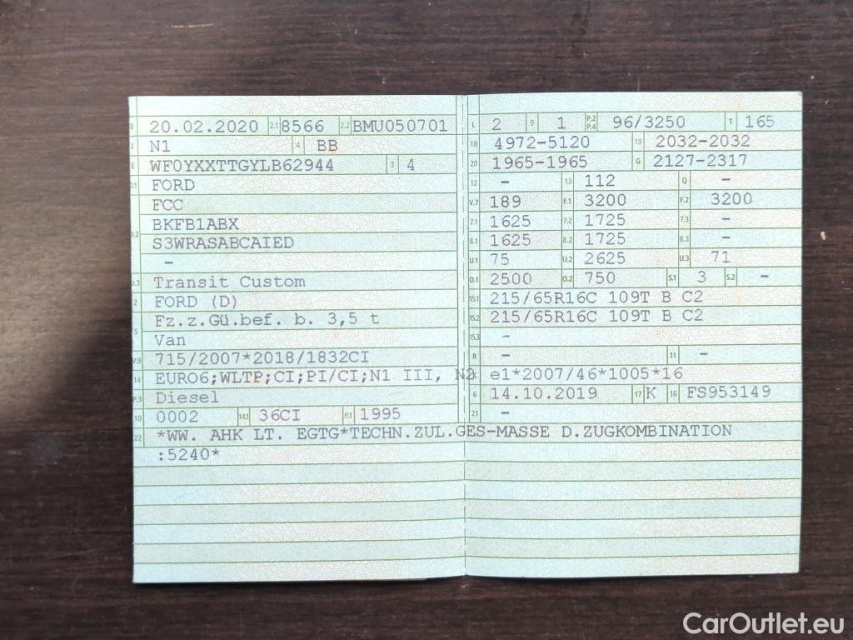 B 20.02.2020 2.1 8566 2.2 BMU050701
J N1 4 BB
E WF0YXXTTGYLB62944 3 4
D.1 FORD
D.2 FCC
BKFB1ABX
S3WRASABCAIED
–
D.3 Transit Custom
2 FORD (D)
5 Fz.z.Gü.bef. b. 3,5 t
Van
V.9 715/2007*2018/1832CI
14 EURO6;WLTP;CI;PI/CI;N1 III, N2
P.3 Diesel
10 0002 14.1 36CI P.1 1995
22 *WW. AHK LT. EGTG*TECHN.ZUL.GES-MASSE D.ZUGKOMBINATION
:5240*
L 2 9 1 P.2 P.4 96/3250 T 165
18 4972-5120 19 2032-2032
20 1965-1965 G 2127-2317
12 – 13 112 Q –
V.7 189 F.1 3200 F.2 3200
7.1 1625 7.2 1725 7.3 –
8.1 1625 8.2 1725 8.3 –
U.1 75 U.2 2625 U.3 71
O.1 2500 O.2 750 S.1 3 S.2 –
15.1 215/65R16C 109T B C2
15.2 215/65R16C 109T B C2
15.3 –
R – 11 –
K e1*2007/46*1005*16
6 14.10.2019 17 K 16 FS953149
21 –
CarOutlet.eu